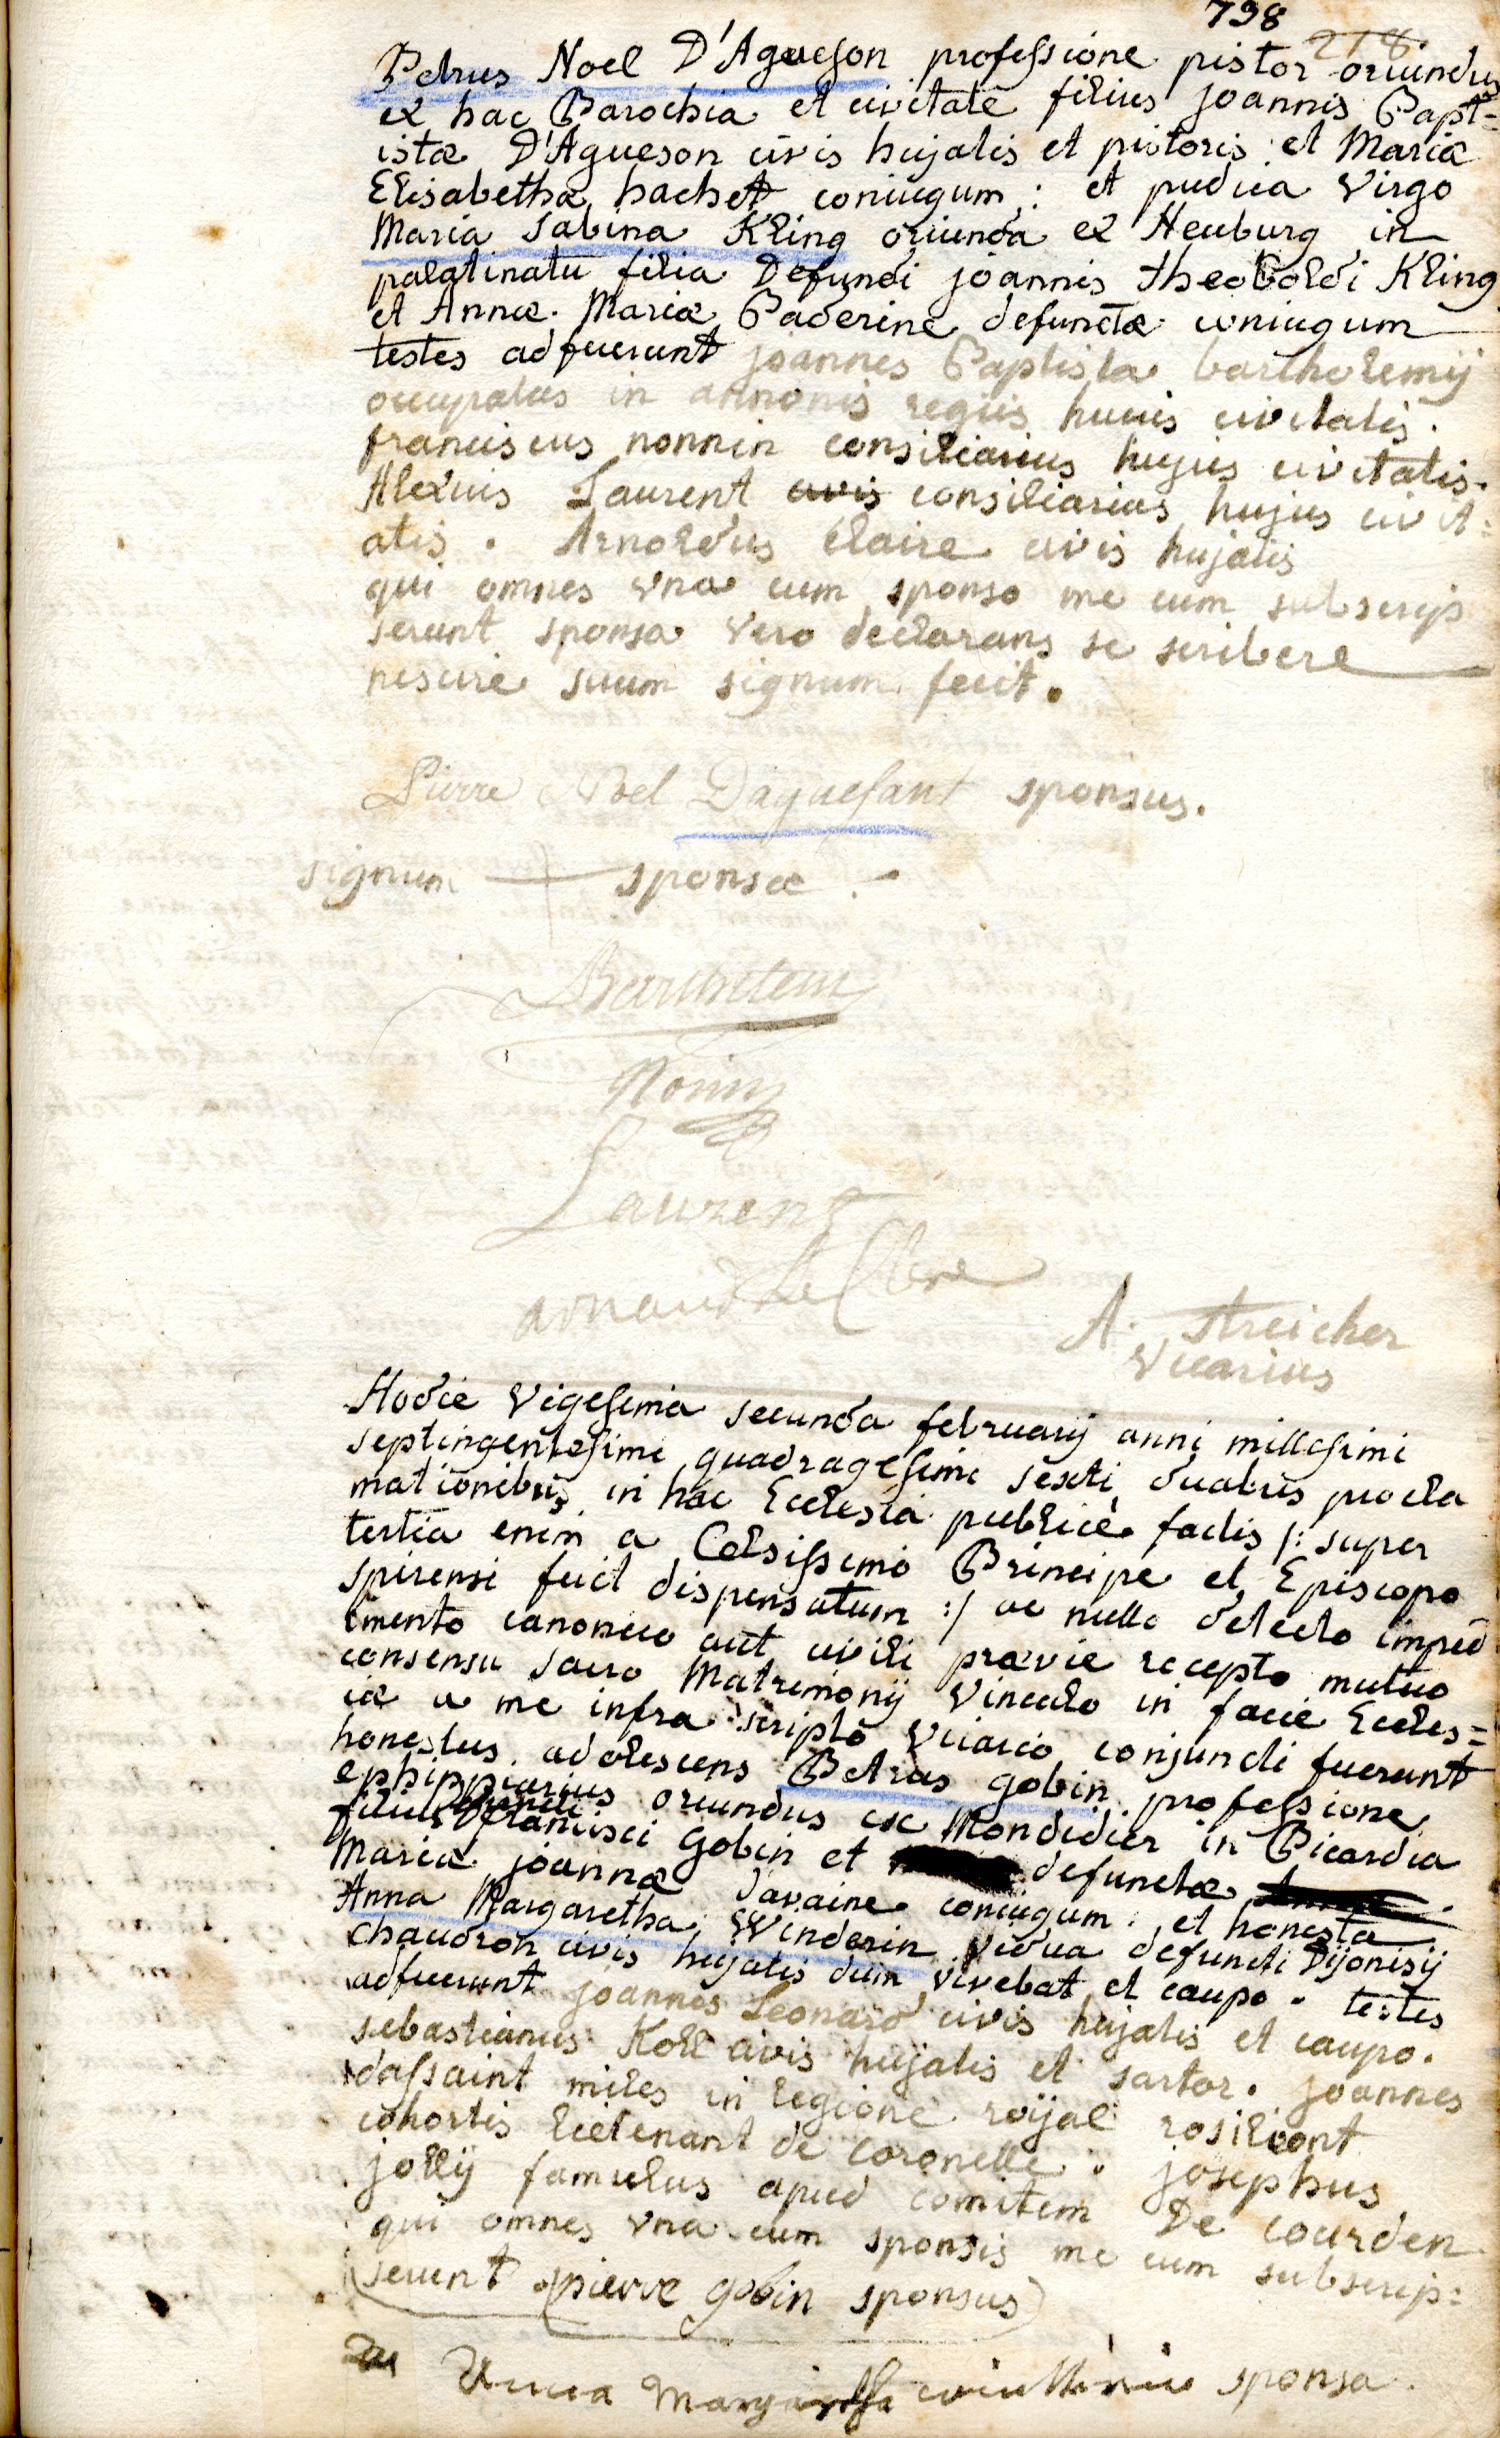 798
218
Petrus Noel D'Agueson professione pistor oriundus
ex hac Parochia et civitate filius joannis Bapt=
istæ D'Agueson civis hujatis et pistoris et Mariæ
Elisabethæ hachet coniugum : et pudica Virgo
Maria Sabina Kling oriunda ex Heuburg in
palatinatu filia Defuncti joannis theoboldi Kling
et Annæ Mariæ Baderine defunctæ coniugum
testes adfuerunt joannes Baptista bartholemij
occupatus in annonis regiis huius civitatis.
franciscus nonnin consiliarius hujus civitatis.
Alexius Laurent civis consiliarius hujus civit=
atis. Arnoldus claire civis hujatis
qui omnes vna cum sponso me cum subscrip
serunt sponsa vero declarans se scribere
nescire suum signum fecit.
Pierre Noel Daguesant sponsus.
signum + sponsæ.
Barthelemy
Nonin
Laurent
arnaud le Clere
A. Streicher
Vicarius
Hodie Vigesima secunda februarij anni millesimi
septingentesimi quadragesimi sexti duabus procla
mationibus in hac Ecclesia publice factis /: super
tertia enim a Celsissimo Principe et Episcopo
spirensi fuit dispensatum :/ ac nullo detecto imped
imento canonico aut civili prævie recepto mutuo
consensu sacro Matrimonij Vinculo in facie Eccles=
iæ a me infra scripto vicario conjuncti fuerunt
honestus adolescens Petrus gobin professione
ephippiarius oriundus ex Mondidier in Picardia
filius defuncti francisci gobin et defunctæ
Mariæ joannæ Davaine coniugum. et honesta
Anna Margaretha Winderin vidua defuncti Dijonisij
chaudron civis hujatis dum vivebat et caupo. testes
adfuerunt joannes Leonard civis hujatis et caupo.
sebastianus Koll civis hujatis et sartor. joannes
dassaint miles in legione roijal rosiliont
cohortis lieutenant de coronelle. josephus
jollij famulus apud comitem De courden
qui omnes vna cum sponsis me cum subscrip:
serunt (pierre gobin sponsus)
Anna Margaretha sponsa.